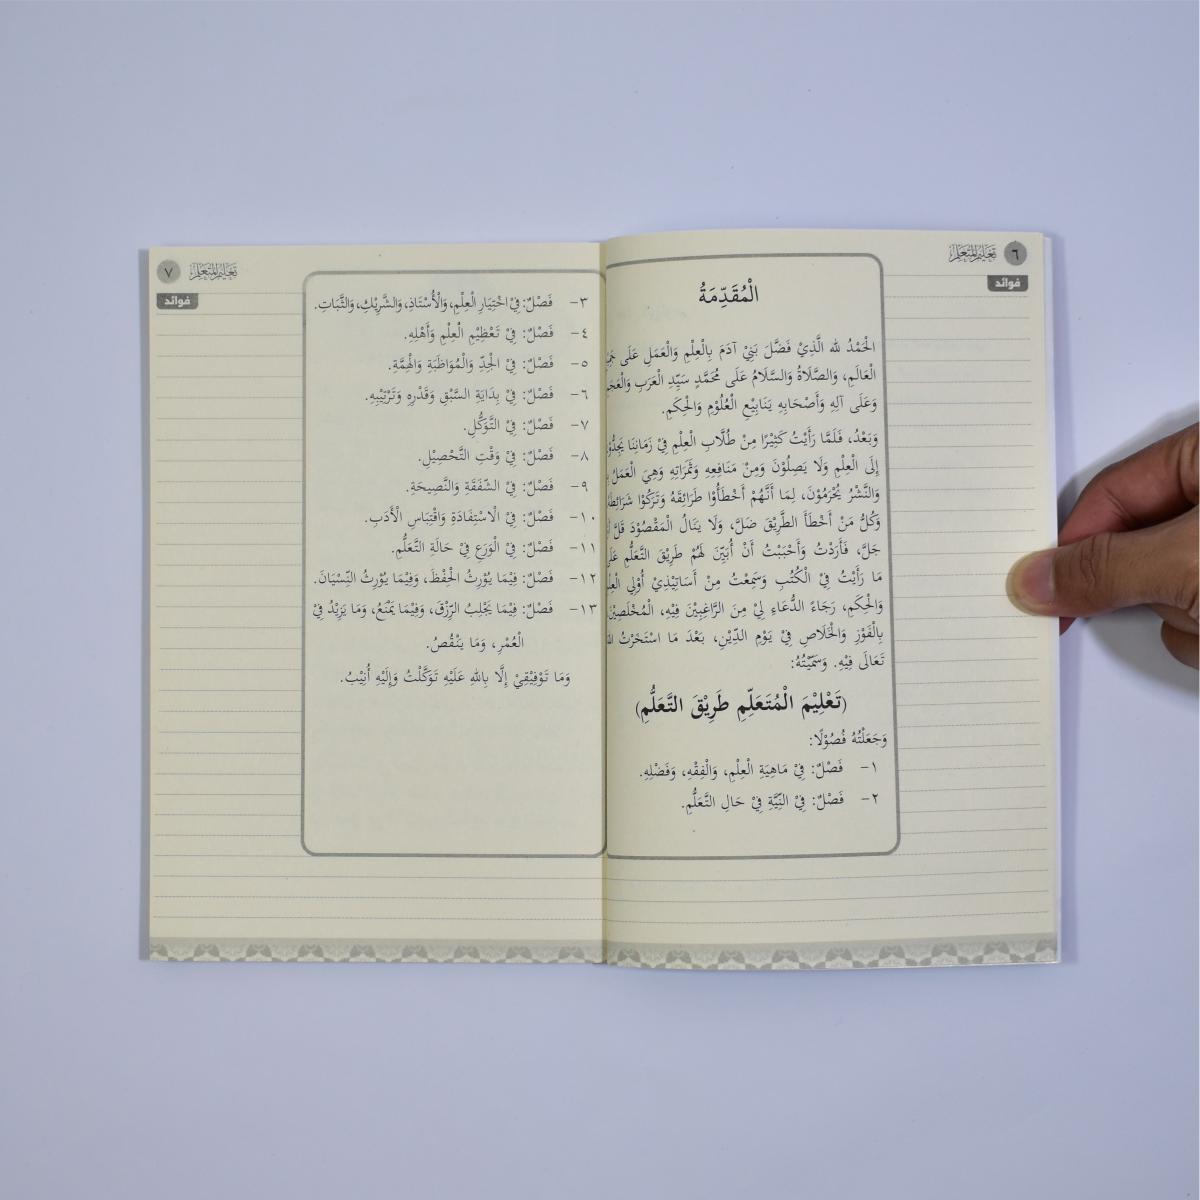 ٦
تعليم المتعلم
فوائد
الْمُقَدِّمَةُ
الْحَمْدُ لله الَّذِيْ فَضَّلَ بَنِيْ آدَمَ بِالْعِلْمِ وَالْعَمَلِ عَلَى
الْعَالَمِ، وَالصَّلَاةُ وَالسَّلَامُ عَلَى مُحَمَّدٍ سَيِّدِ الْعَرَبِ وَالْعَجَمِ
وَعَلَى آلِهِ وَأَصْحَابِهِ يَنَابِيْعِ الْعُلُوْمِ وَالْحِكَمِ.
وَبَعْدُ، فَلَمَّا رَأَيْتُ كَثِيْرًا مِنْ طُلَّابِ الْعِلْمِ فِيْ زَمَانِنَا
إِلَى الْعِلْمِ وَلَا يَصِلُوْنَ وَمِنْ مَنَافِعِهِ وَثَمَرَاتِهِ وَهِيَ الْعَمَلُ
وَالنَّشْرُ يُحْرَمُوْنَ، لِمَا أَنَّهُمْ أَخْطَأُوْا طَرَائِقَهُ وَتَرَكُوْا
وَكُلُّ مَنْ أَخْطَأَ الطَّرِيْقَ ضَلَّ، وَلَا يَنَالُ الْمَقْصُوْدَ قَلَّ
جَلَّ، فَأَرَدْتُ وَأَحْبَبْتُ أَنْ أُبَيِّنَ لَهُمْ طَرِيْقَ التَّعَلُّمِ عَلَى
مَا رَأَيْتُ فِيْ الْكُتُبِ وَسَمِعْتُ مِنْ أَسَاتِيْذِيْ أُوْلِي
وَالْحِكَمِ، رَجَاءَ الدُّعَاءِ لِيْ مِنَ الرَّاغِبِيْنَ فِيْهِ، الْمُخْلَصِيْنَ
بِالْفَوْزِ وَالْخَلَاصِ فِيْ يَوْمِ الدِّيْنِ، بَعْدَ مَا اسْتَخَرْتُ
تَعَالَى فِيْهِ. وَسَمَّيْتُهُ:
(تَعْلِيْمَ الْمُتَعَلِّمِ طَرِيْقَ التَّعَلُّمِ)
وَجَعَلْتُهُ فُصُوْلًا:
١- فَصْلٌ: فِيْ مَاهِيَةِ الْعِلْمِ، وَالْفِقْهِ، وَفَضْلِهِ.
٢- فَصْلٌ: فِيْ النِّيَّةِ فِيْ حَالِ التَّعَلُّمِ.
تعليم المتعلم
٧
فوائد
٣- فَصْلٌ: فِيْ اخْتِيَارِ الْعِلْمِ، وَالْأُسْتَاذِ، وَالشَّرِيْكِ، وَالثَّبَاتِ.
٤- فَصْلٌ: فِيْ تَعْظِيْمِ الْعِلْمِ وَأَهْلِهِ.
٥- فَصْلٌ: فِيْ الْجِدِّ وَالْمُوَاظَبَةِ وَالْهِمَّةِ.
٦- فَصْلٌ: فِيْ بِدَايَةِ السَّبْقِ وَقَدْرِهِ وَتَرْتِيْبِهِ.
٧- فَصْلٌ: فِيْ التَّوَكُّلِ.
٨- فَصْلٌ: فِيْ وَقْتِ التَّحْصِيْلِ.
٩- فَصْلٌ: فِيْ الشَّفَقَةِ وَالنَّصِيحَةِ.
١٠- فَصْلٌ: فِيْ الْاسْتِفَادَةِ وَاقْتِبَاسِ الْأَدَبِ.
١١- فَصْلٌ: فِيْ الْوَرَعِ فِيْ حَالَةِ التَّعَلُّمِ.
١٢- فَصْلٌ: فِيْمَا يُوْرِثُ الْحِفْظَ، وَفِيْمَا يُوْرِثُ النِّسْيَانَ.
١٣- فَصْلٌ: فِيْمَا يَجْلِبُ الرِّزْقَ، وَفِيْمَا يَمْنَعُ، وَمَا يَزِيْدُ فِيْ
الْعُمْرِ، وَمَا يَنْقُصُ.
وَمَا تَوْفِيْقِيْ إِلَّا بِاللهِ عَلَيْهِ تَوَكَّلْتُ وَإِلَيْهِ أُنِيْبُ.